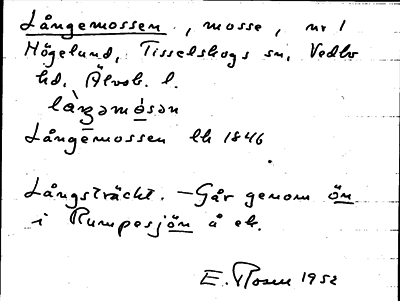 Långemossen, mosse, nr 1
Högelund, Tisselskogs sn, Vedbo
hd, Älvsb. l.
làŋgəmósən
Långemossen lk 1846
Långsträckt. – Går genom ön
i Rumpesjön å ek.
E. Rosen 1952